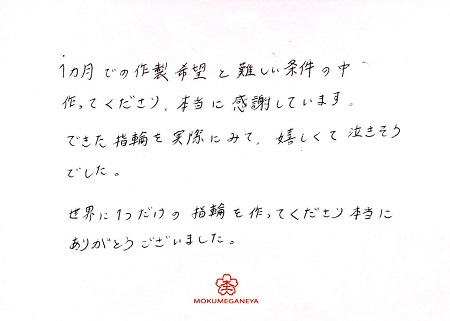 1カ月での作製希望と難しい条件の中
作ってくださり、本当に感謝しています。
できた指輪を実際にみて、嬉しくて泣きそう
でした。
世界に1つだけの指輪を作ってくださり本当に
ありがとうございました。
MOKUMEGANEYA